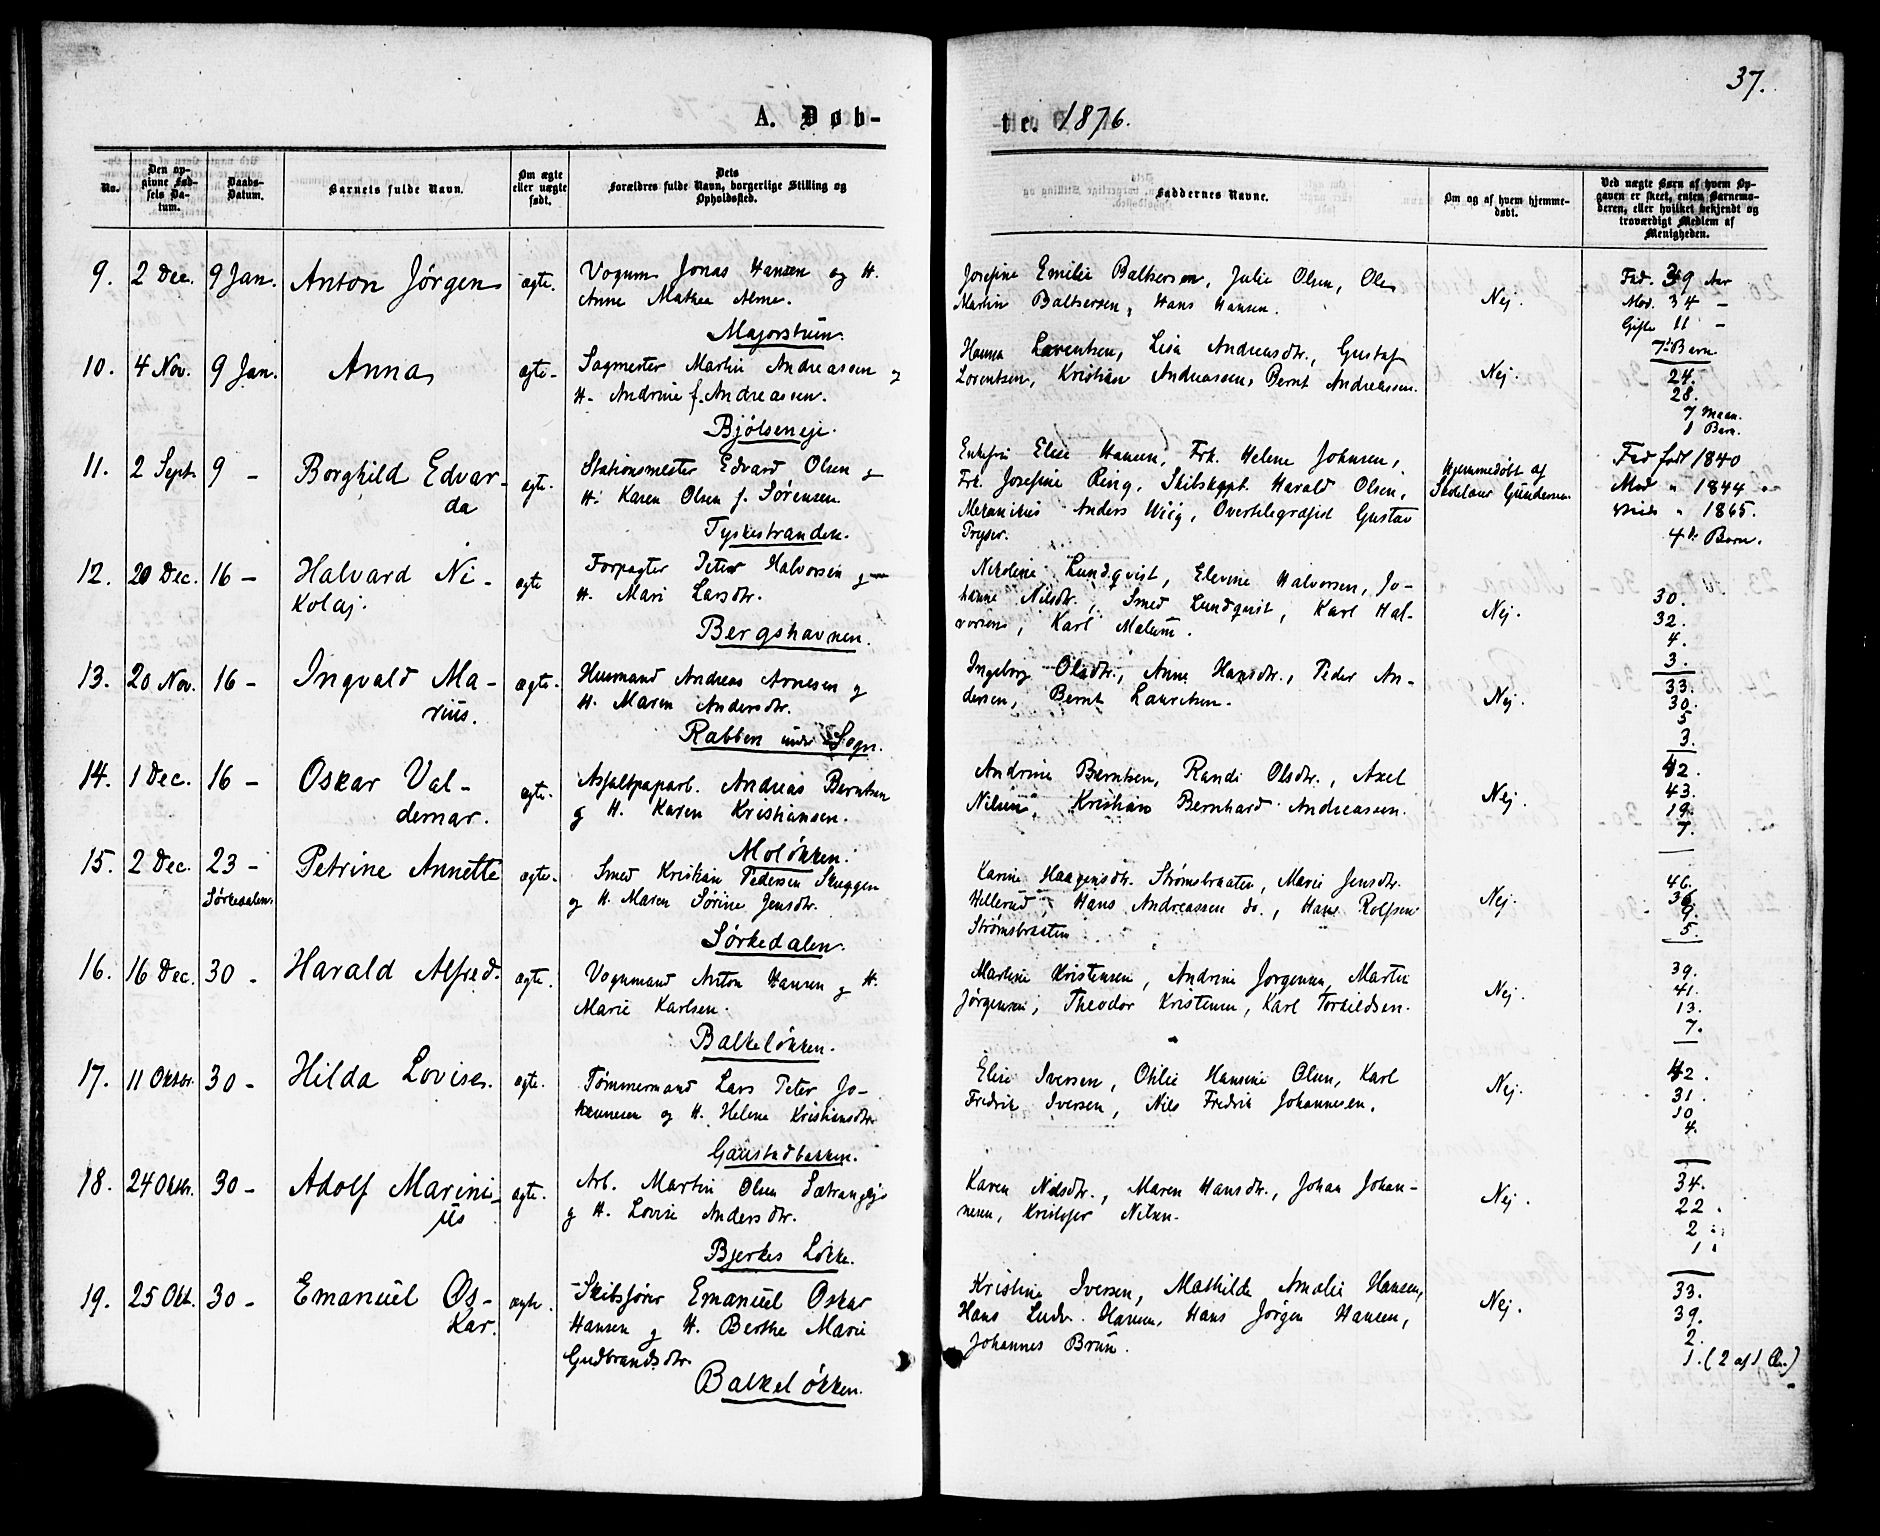 37.
A. Døb-
te. 1876.
No.
Den op-
givne Fød-
sels Da-
tum.
Daabs-
Datum.
Barnets fulde Navn.
Om ægte
eller uægte
født.
Dets
Forældres fulde Navn, borgerlige Stilling og
Opholdssted.
Faddernes Navne.
Om og af hvem hjemme-
døbt.
Ved uægte Børn af hvem Op-
gaven er skeet, enten Barnemo-
deren, eller hvilket bekjendt og
troværdigt Medlem af
Menigheden.
9. 2 Dec. 9 Jan. Anton Jørgen ægte.
Vognm. Jonas Hansen og H.
Anne Mathea Alme.
Majorstuen.
Josefine Emilie Baltsersen, Julie Olsen, Ole
Martin Baltsersen, Hans Hansen.
Nej.
Fad. 39 Aar
Mod. 34 -
Gifte 11 -
7de Barn.
10. 4 Nov. 9 Jan. Anna ægte-
Sagmester Martin Andreassen og
H. Andrine f. Andreassen.
Bjølseneje.
Hanna Lorentsen, Lisa Andreasdtr., Gustaf
Lorentsen, Kristian Andreassen, Bernt Andreassen.
Nej.
24.
28.
7 Maan.
1 Barn.
11. 2 Sept. 9 - Borghild Edvar-
da ægte.
Stationsmester Edvard Olsen og
H. Karen Olsen f. Sørensen
Tyskestranden.
Enkefru Elise Hansen, Frk. Helene Johnsen,
Frk. Josefine Ring, Skibskapt. Harald Olsen,
Mekanikus Anders Wiig, Overtelegrafist Gustav
Fryser.
Hjemmedøbt af
Skolelærer Gundersen
Fad født 1840
Mod " 1844
" 1865.
4de Barn.
12. 20 Dec. 16 - Halvard Ni-
kolaj. ægte
Forpagter Peter Halvorsen og
H. Mari Larsdtr.
Bergshavnen.
Nikoline Lundqvist, Elevine Halvorsen, Jo-
hanne Nilsdtr., Smed Lundqvist, Karl Hal-
vorsen, Karl Malum.
Nej.
30.
32.
4.
3.
13. 20 Nov. 16 - Ingvald Ma-
rius. ægte.
Huusmand Andreas Arnesen og
H. Maren Andersdtr.
Rabben under Sogn.
Ingeborg Olsdtr., Anne Hansdtr., Peder An-
dersen, Bernt Lauritsen.
Nej.
33.
30.
5
3.
14. 1 Dec. 16 - Oskar Val-
demar. ægte.
Asfaltpaparb. Andreas Berntsen
og H. Karen Kristiansen.
Moløkken.
Andrine Berntsen, Randi Olsdtr., Axel
Nilsen, Kristian Bernhard Andreassen.
Nej.
42.
43.
19.
7.
15. 2 Dec. 23 - Petrine Annette ægte.
Sørkedalen.
Smed Kristian Pedersen Skuggen
og H. Maren Sørine Jensdtr.
Sørkedalen.
Karine Haagensdtr. Strømsbraaten, Marie Jensdtr.
Hillerud, Hans Andreassen do., Hans Rolfsen
Strømsbraaten
Nej.
46.
36.
9.
5.
16. 16 Dec. 30 - Harald Alfred. ægte.
Vognmand Anton Hansen og H.
Marie Karlsen.
Balkeløkken.
Martine Kristensen, Andrine Jørgensen, Martin
Jørgensen, Theodor Kristensen, Karl Torkildsen.
Nej.
39.
41.
13.
7.
17. 11 Oktbr. 30 - Hilda Lovise. ægte.
Tømmermand Lars Peter Jo-
hannesen og H. Helene Kristiansdtr.
Gaustadbakken.
Elise Iversen, Otilie Hansine Olsen, Karl
Fredrik Iversen, Nils Fredrik Johannesen.
Nej.
42.
31.
10
4.
18. 24 Oktbr. 30 - Adolf Marini-
us ægte.
Arb. Martin Olsen
og H. Lovise Andersdtr.
Bjerkes Løkke.
Karen Nilsdtr., Maren Hansdtr., Johan Johan-
nesen, Kristofer Nilsen.
Nej.
34.
22.
2
1
19. 25 Okt. 30 - Emanuel Os-
kar. ægte.
Skibsfører Emanuel Oskar
Hansen og H. Berthe Marie
Gudbrandsdtr.
Balkeløkken.
Kristine Iversen, Mathilde Amalie Hansen,
Hans Ludv. Hansen, Hans Jørgen Hansen,
Johannes Brun.
Nej.
33.
39.
2.
1. (2 af 1 Æ.)